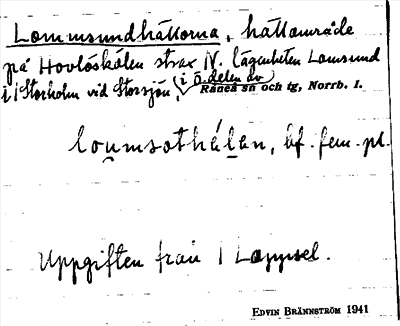 Lommsundhällorna, hällområde
på Hovlöskälen strax N. lägenheten Lomsund
i Storholm vid Storsjön, i ö. delen av Råneå sn och tg, Norrb. l.
loumsothálan, bf. fem. pl.
Uppgiften från Lappsel.
EDVIN BRÄNNSTRÖM 1941